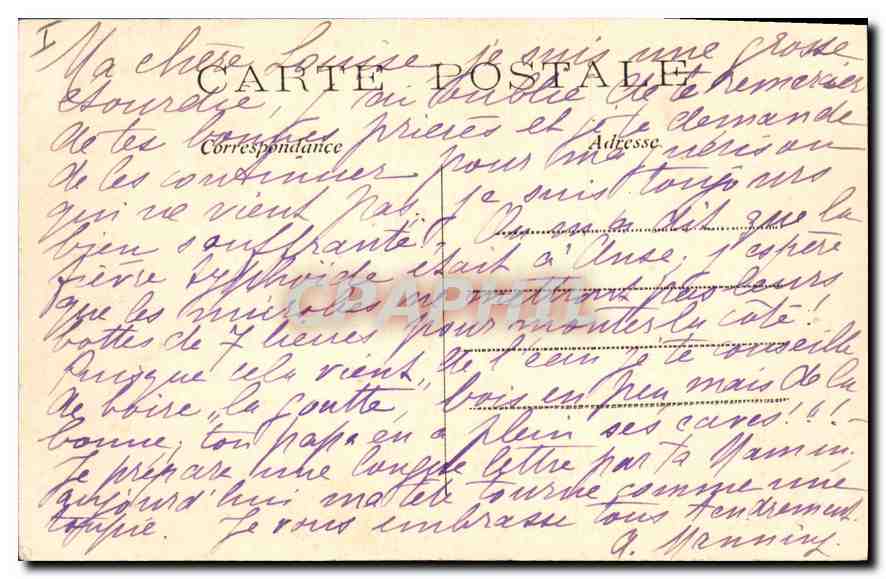 I
Ma chère Louise, je suis une grosse
CARTE POSTALE
étourdie, j'ai oublié de te remercier
de tes bonnes prières et je te demande
Correspondance
Adresse
de les continuer pour ma guérison
qui ne vient pas, je suis toujours
bien souffrante. On m'a dit que la
fièvre typhoïde était à Anse, j'espère
que les microbes ne mettront pas leurs
CPAPHIL
bottes de 7 lieues pour monter la côte!
Puisque cela vient de l'eau je te conseille
de boire "la goutte", bois en peu mais de la
bonne, ton papa en a plein ses caves!!!
Je prépare une longue lettre pr ta Maman.
aujourd'hui ma tête tourne comme une
toupie. Je vous embrasse tous tendrement.
a.